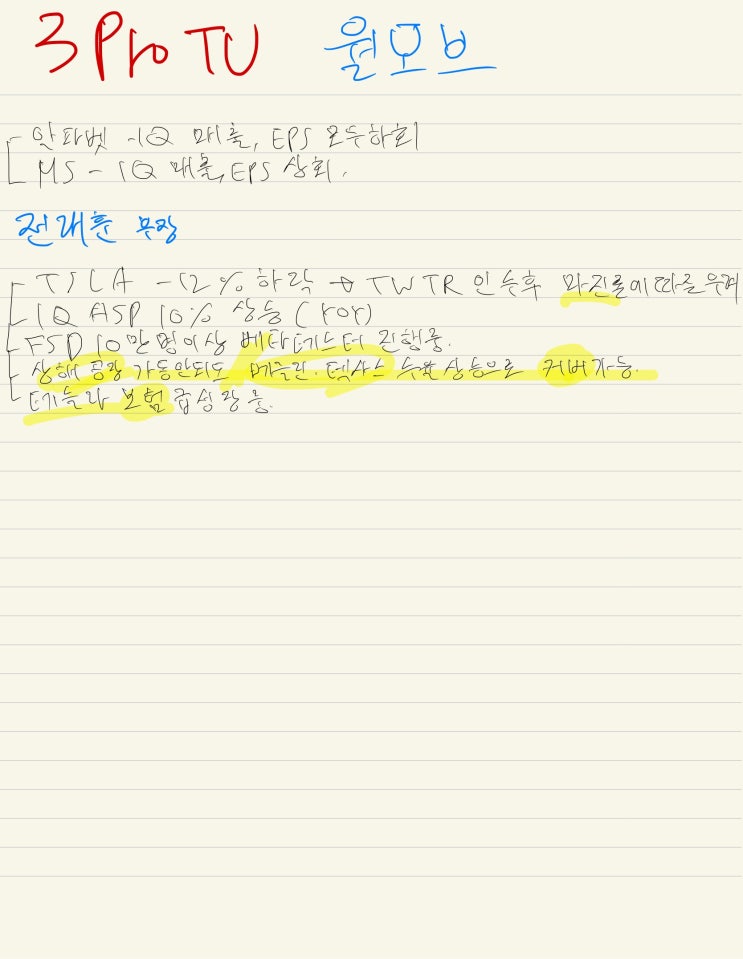 3Pro TV 월모브
알파벳 -1Q 매출, EPS 모두하회
MS - 1Q 매출, EPS 상회.
전래훈 부장
TSLA -12% 하락 → TWTR 인수후 마진콜에 따른우려
1Q ASP 10% 상승 (YOY)
FSD 10만명이상 베타테스터 진행중.
상해 공장 가동안되도 베를린. 텍사스 수율상승으로 커버가능.
테슬라 보험급성장중.